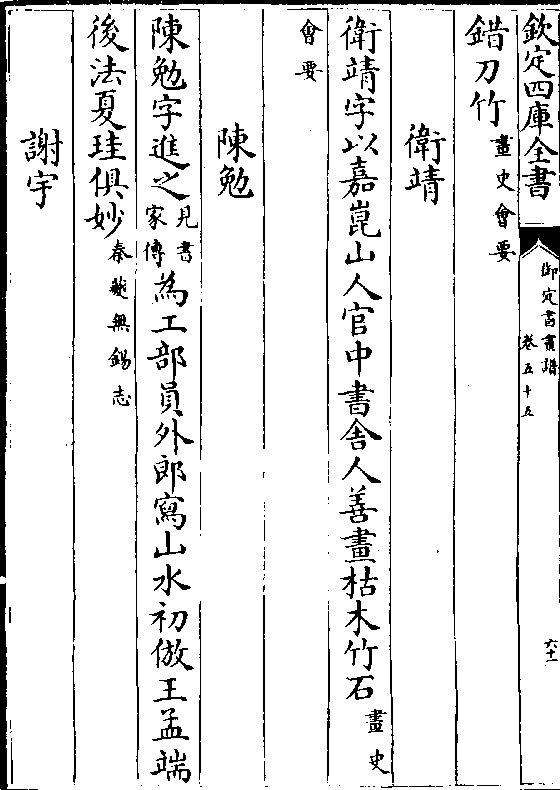 欽定四庫全書
御定書畫譜
卷五十五
六十一
錯刀竹畫史會要
衛靖
衛靖字以嘉崑山人官中書舍人善畫枯木竹石畫史
會要
陳勉
陳勉字進之見書家傳為工部員外郎寫山水初倣王孟端
後法夏珪俱妙秦夔無錫志
謝宇